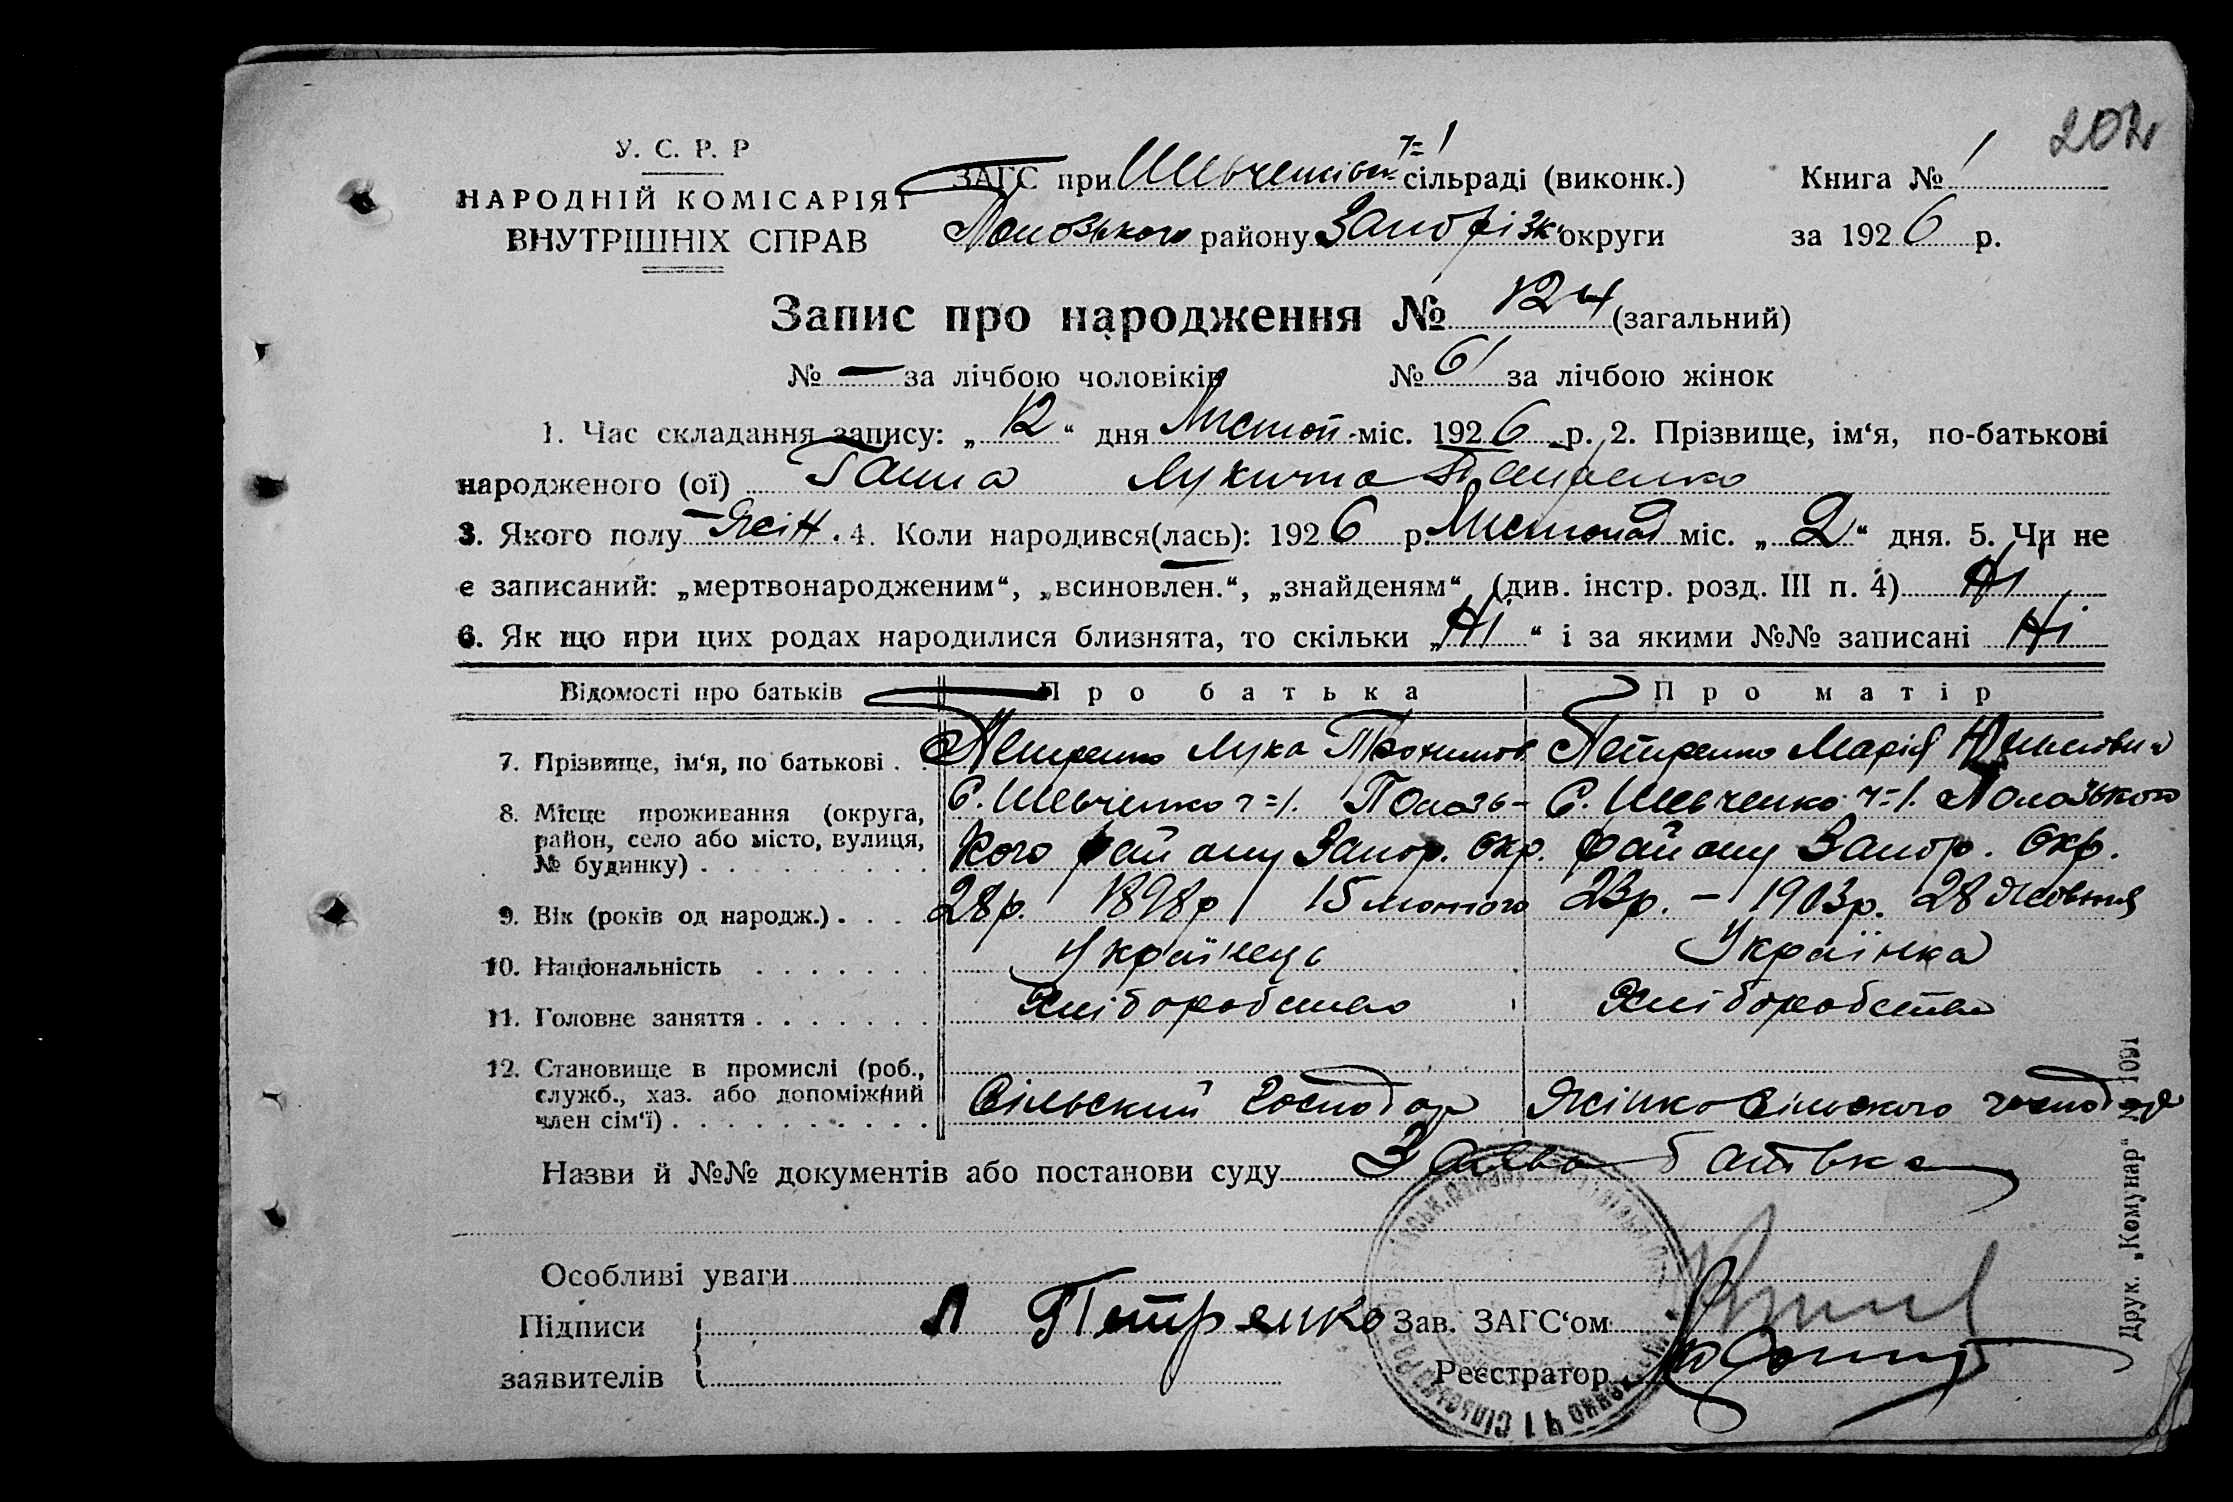 202
У. С. Р. Р
НАРОДНІЙ КОМІСАРІЯТ
ВНУТРІШНІХ СПРАВ
ЗАГС при Шевченківськ. ч=1 сільраді (виконк.)
Пологського району Запоріжк округи
Книга № 1
за 1926 р.
Запис про народження № 124 (загальний)
№ — за лічбою чоловіків № 61 за лічбою жінок
1. Час складання запису: „12“ дня Листоп. міс. 1926 р. 2. Прізвище, ім‘я, по-батькові
народженого (ої) Ганна Лукична Петренко
3. Якого полу Жін. 4. Коли народився(лась): 1926 р. Листопад міс. „2“ дня. 5. Чи не
є записаний: „мертвонародженим“, „всиновлен.“, „знайденям“ (див. інстр. розд. III п. 4) Ні
6. Як що при цих родах народилися близнята, то скільки „Ні“ і за якими №№ записані Ні
Відомості про батьків Про батька Про матір
7. Прізвище, ім‘я, по батькові . . Петренко Лука Трохимов Петренко Марія
8. Місце проживання (округа, район, село або місто, вулиця, № будинку) . . . . . . . . .
С. Шевченко ч=1. Полозь-
кого району Запор. Окр.
С. Шевченко ч=1. Полозького
району Запор. Окр.
9. Вік (років од народж.) . . . 28р. 1898р 15 лютого 23р. – 1903р. 28 Жовтня
10. Національність . . . . . . . Українець Українка
11. Головне заняття . . . . . . . Хліборобство Хліборобство
12. Становище в промислі (роб., служб., хаз. або допоміжний член сім‘ї) . . . . . . . . . .
Сільский Господар Жінка сільского господаря
Назви й №№ документів або постанови суду Заява батька
Особливі уваги
Підписи
заявителів
Л Петренко
Зав. ЗАГС‘ом
Реєстратор
Друк. „Комунар“ № 1091